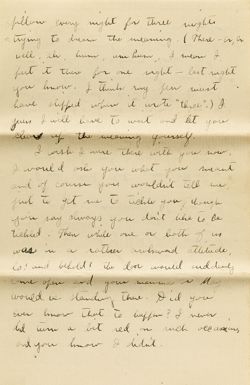 pillow every night for three nights
trying to dream the meaning. (Three—uh,
well, ah, hum, um hum, I mean I
put it there for one night – last night
you know. I think my pen must
have slipped when it wrote "three".) I
guess I will have to wait and let you
clear up the meaning yourself.
I wish I were there with you now.
I would ask you what you meant
and of course you wouldn't tell me,
just to get me to tickle you, though
you say always you don't like to be
tickled. Then while one or both of us
was in a rather awkward attitude,
lo! and behold! the door would suddenly
come open and your mamma or May
would be standing there. Did you
ever know that to happen? I never
did turn a bit red on such occasions
and you know I didn't.